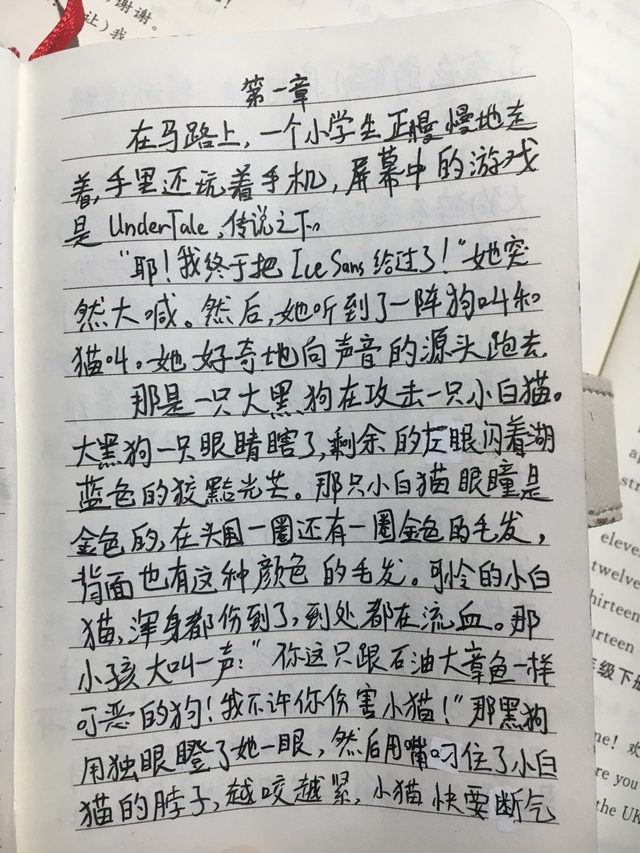 谢谢。
让)我
第一章
在马路上，一个小学生正慢慢地走
着，手里还玩着手机，屏幕中的游戏
是UnderTale，传说之下。
“耶！我终于把Ice Sans给过了！”她突
然大喊。然后，她听到了一阵狗叫和
猫叫。她好奇地向声音的源头跑去.
那是一只大黑狗在攻击一只小白猫。
大黑狗一只眼睛瞎了，剩余的左眼闪着湖
蓝色的狡黠光芒。那只小白猫眼瞳是
金色的，在头围一圈还有一圈金色的毛发，
背面也有这种颜色的毛发。可怜的小白
猫，浑身都伤到了，到处都在流血。那
小孩大叫一声：“你这只跟石油大章鱼一样
可恶的狗！我不许你伤害小猫！”那黑狗
用独眼瞪了她一眼，然后用嘴叼住了小白
猫的脖子，越咬越紧，小猫快要断气
eleve
twelve
thirteen
urteen
年级下册
me! 欢
re you
the UK